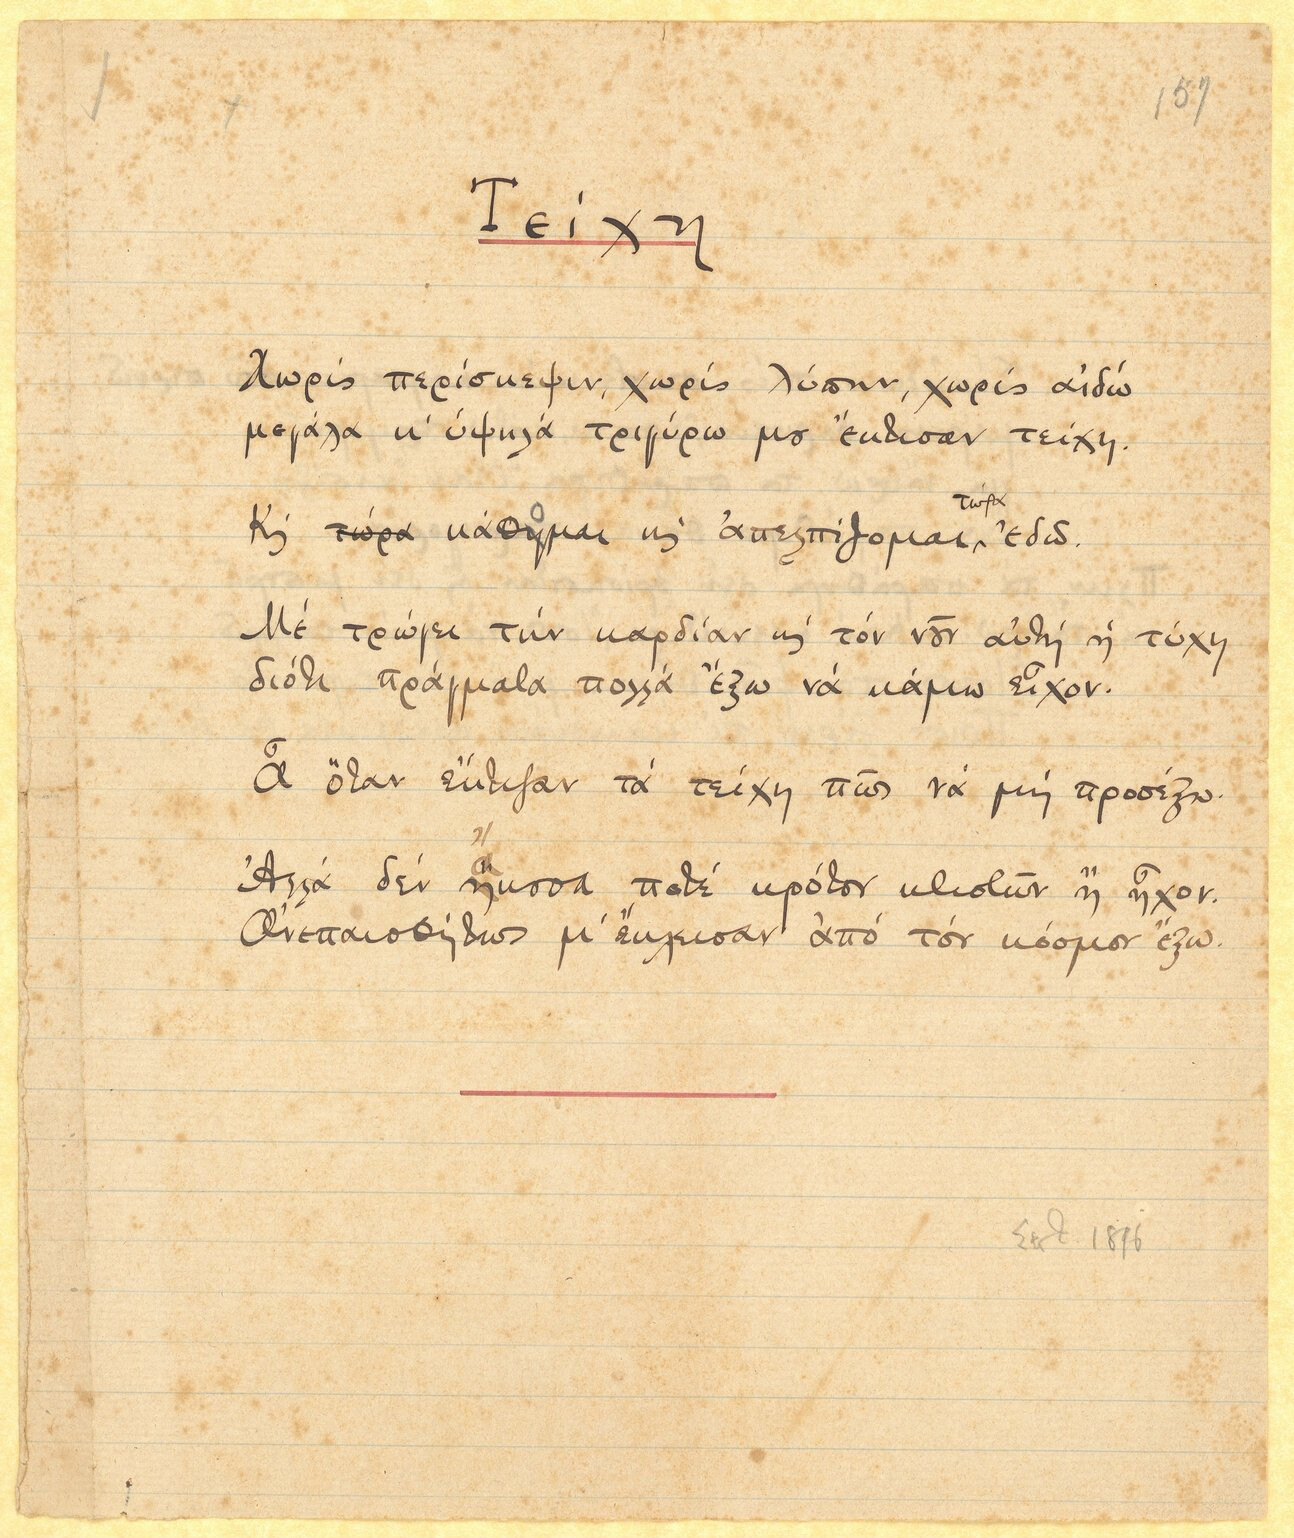 157
Τείχη
Χωρίς περίσκεψιν, χωρίς λύπην, χωρίς αἰδώ
μεγάλα κ' ὑψηλά τριγύρω μου ἔκτισαν τείχη.
τώρα
Κι τώρα κάθομαι κι ἀπελπίζομαι ἐδῶ.
Μέ τρώγει τήν καρδίαν κι τόν νοῦν αὐτή ἡ τύχη
διότι πράγματα πολλά ἔξω νά κάμω εἶχον.
Ἆ ὅταν ἔκτιζαν τά τείχη πῶς νά μή προσέξω.
Ἀλλά δέν ἤκουσα ποτέ κρότον κτιστῶν ἤ ἦχον.
Ἀνεπαισθήτως μ' ἔκλεισαν ἀπό τόν κόσμον ἔξω.
Σεπτ. 1896